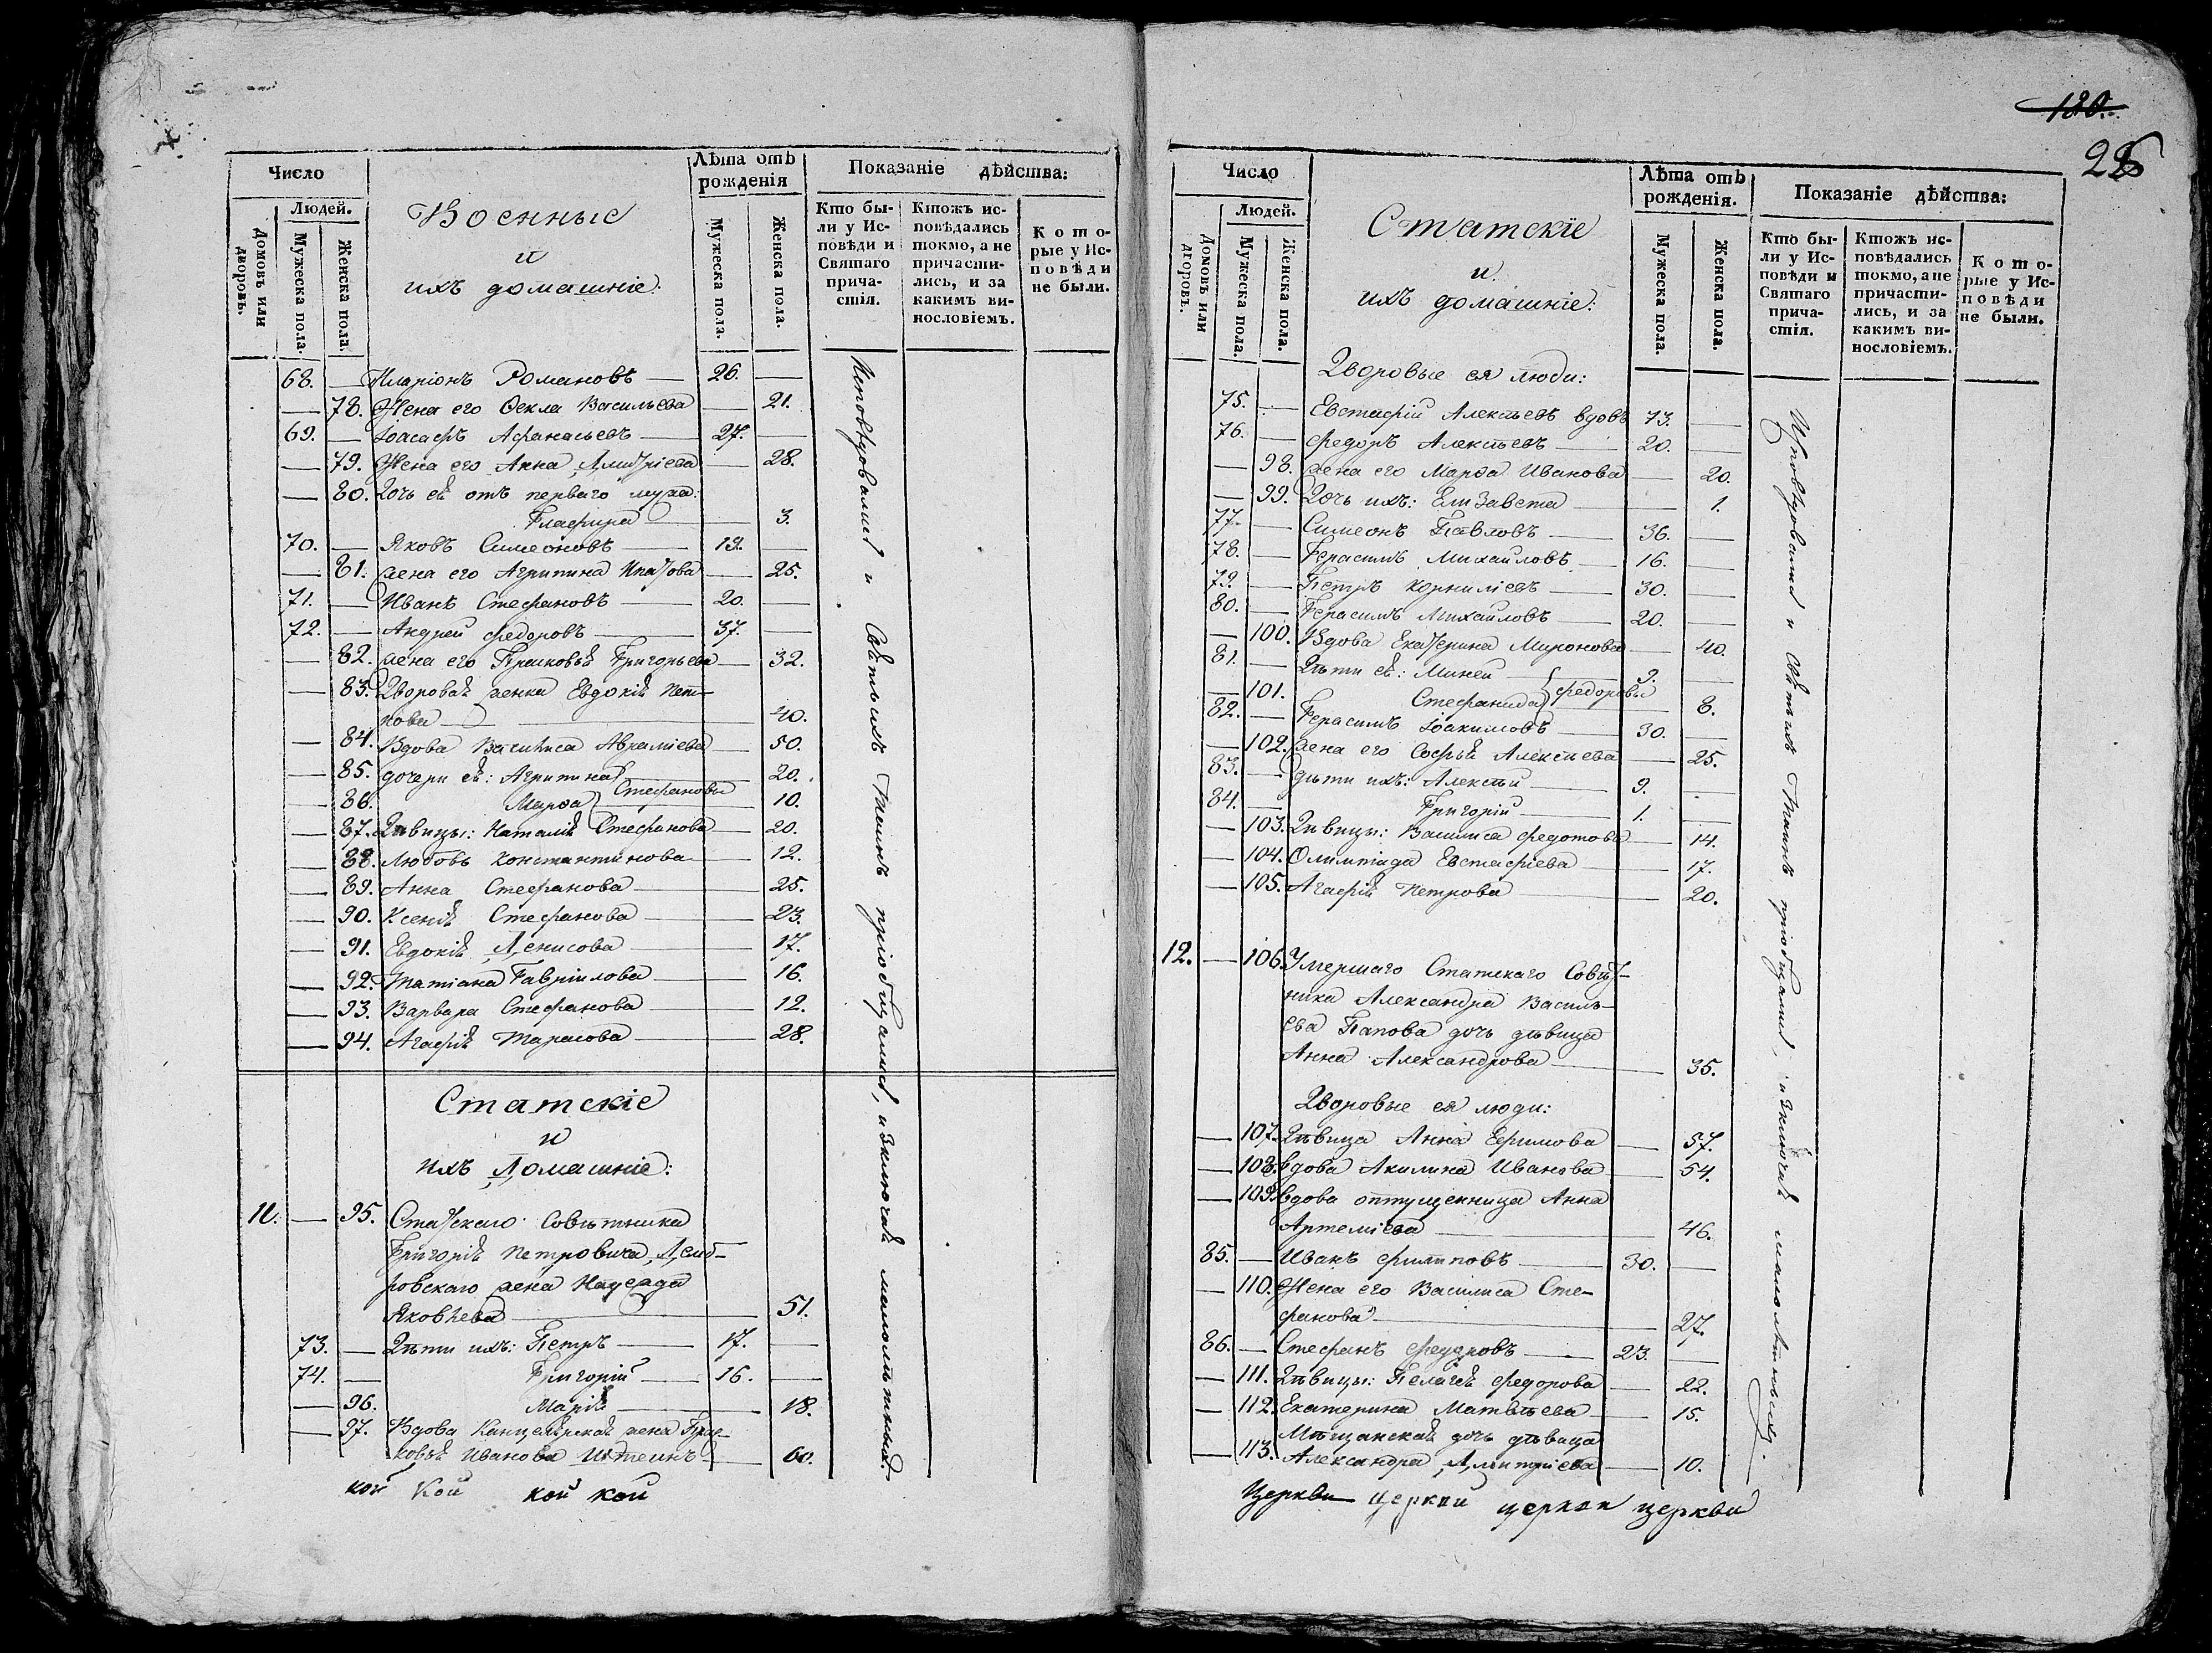 Число
Людей.
Домовъ или дворовъ.
Мужеска пола.
Женска пола.
Военные
и
ихъ домашніе:
Лѣта отъ рожденія
Мужеска пола.
Женска пола.
Показаніе дѣйства:
Кто бы-
ли у Ис-
повѣди и
Святаго
прича-
стія.
Ктожъ ис-
повѣдались
токмо, а не
причасти-
лись, и за
какимъ ви-
нословіемъ.
Кото-
рые у Ис-
повѣди
не были.
68. — Иларіонъ Романовъ — 26. —
— 78. Жена его Ѳекла Васильева — 21.
69. — Іоасафъ Афанасьевъ — 27. —
— 79. Жена его Анна Дмитріева — 28.
— 80. Дочь ея отъ перваго мужа:
Глафира — 3.
70. — Яковъ Симеоновъ — 19. —
— 81. жена его Агрипина Ипатова — 25.
71. — Иванъ Стефановъ — 20. —
72. — Андрей Федоровъ — 37. —
— 82. жена его Прасковья Григорьева — 32.
— 83. Дворовая женка Евдокія Пет-
рова — 40.
— 84. Вдова Василиса Авраміева — 50.
— 85. дочери ея: Агрипина — 20.
— 86. Марѳа Стефановы — 10.
— 87. Дѣвицы: Наталія Стефанова — 20.
— 88. Любовь Константинова — 12.
— 89. Анна Стефанова — 25.
— 90. Ксенія Стефанова — 23.
— 91. Евдокія Денисова — 17.
— 92. Татіана Гавріилова — 16.
— 93. Варвара Стефанова — 12.
— 94. Агафія Тарасова — 28.
Статскіе
и
ихъ Домашніе:
11. — 95. Статскаго Совѣтника
Григорія Петровича Домб-
ровскаго жена Надежда
Яковлева — 51.
73. — Дѣти ихъ: Петръ — 17. —
74. — Григорій — 16. —
— 96. Марія — 18.
— 97. Вдова Канцелярская жена Прас-
ковья Иванова Штеинъ — 60.
кой кой кой кой
Исповѣдовались и Святыхъ Таинъ пріобщались, изключая малолѣтныхъ
120.
Число
Людей.
Домовъ или дворовъ.
Мужеска пола.
Женска пола.
Статскіе
и
ихъ домашніе:
Лѣта отъ рожденія.
Мужеска пола.
Женска пола.
Показаніе дѣйства:
Кто бы-
ли у Ис-
повѣди и
Святаго
прича-
стія.
Ктожъ ис-
повѣдались
токмо, а не
причасти-
лись, и за
какимъ ви-
нословіемъ.
Кото-
рые у Ис-
повѣди
не были.
Дворовые ея люди:
75. — Евстафій Алексѣевъ вдовъ 73. —
76. — Федоръ Алексѣевъ — 20. —
— 98. жена его Марѳа Иванова — 20.
— 99. Дочь ихъ: Елизавета — 1.
77. — Симеонъ Павловъ — 36. —
78. — Герасимъ Михайловъ — 16. —
79. — Петръ Корниліевъ — 30. —
80. — Герасимъ Михайловъ — 20. —
— 100. Вдова Екатерина Миронова — 40.
81. — Дѣти ея: Миней — 9. —
— 101. Стефанида Федоровы — 8.
82. — Герасимъ Іоакимовъ — 30. —
— 102. жена его Софья Алексѣева — 25.
83. — дѣти ихъ: Алексѣй — 9. —
84. — Григорій — 1. —
— 103. Дѣвицы: Василиса Федотова — 14.
— 104. Олимпіада Евстафіева — 17.
— 105. Агафія Петрова — 20.
12. — 106. Умершаго Статскаго Совѣт-
ника Александра Василь-
ева Папова дочь дѣвица
Анна Александрова — 35.
Дворовые ея люди:
— 107. Дѣвица Анна Ефимова — 57.
— 108. вдова Акилина Иванова — 54.
— 109. вдова отпущенница Анна
Артеміева — 46.
85. — Иванъ Филиповъ — 30. —
— 110. Жена его Василиса Сте-
фанова — 27.
86. — Стефанъ Федоровъ — 23. —
— 111. Дѣвицы: Пелагея Федорова — 22.
— 112. Екатерина Матвѣева — 15.
Мѣщанская дочь дѣвица
— 113. Александра Дмитріева — 10.
Церкви церкви церкви церкви
Исповѣдовались и Святыхъ Таинъ пріобщались, изключая малолѣтныхъ.